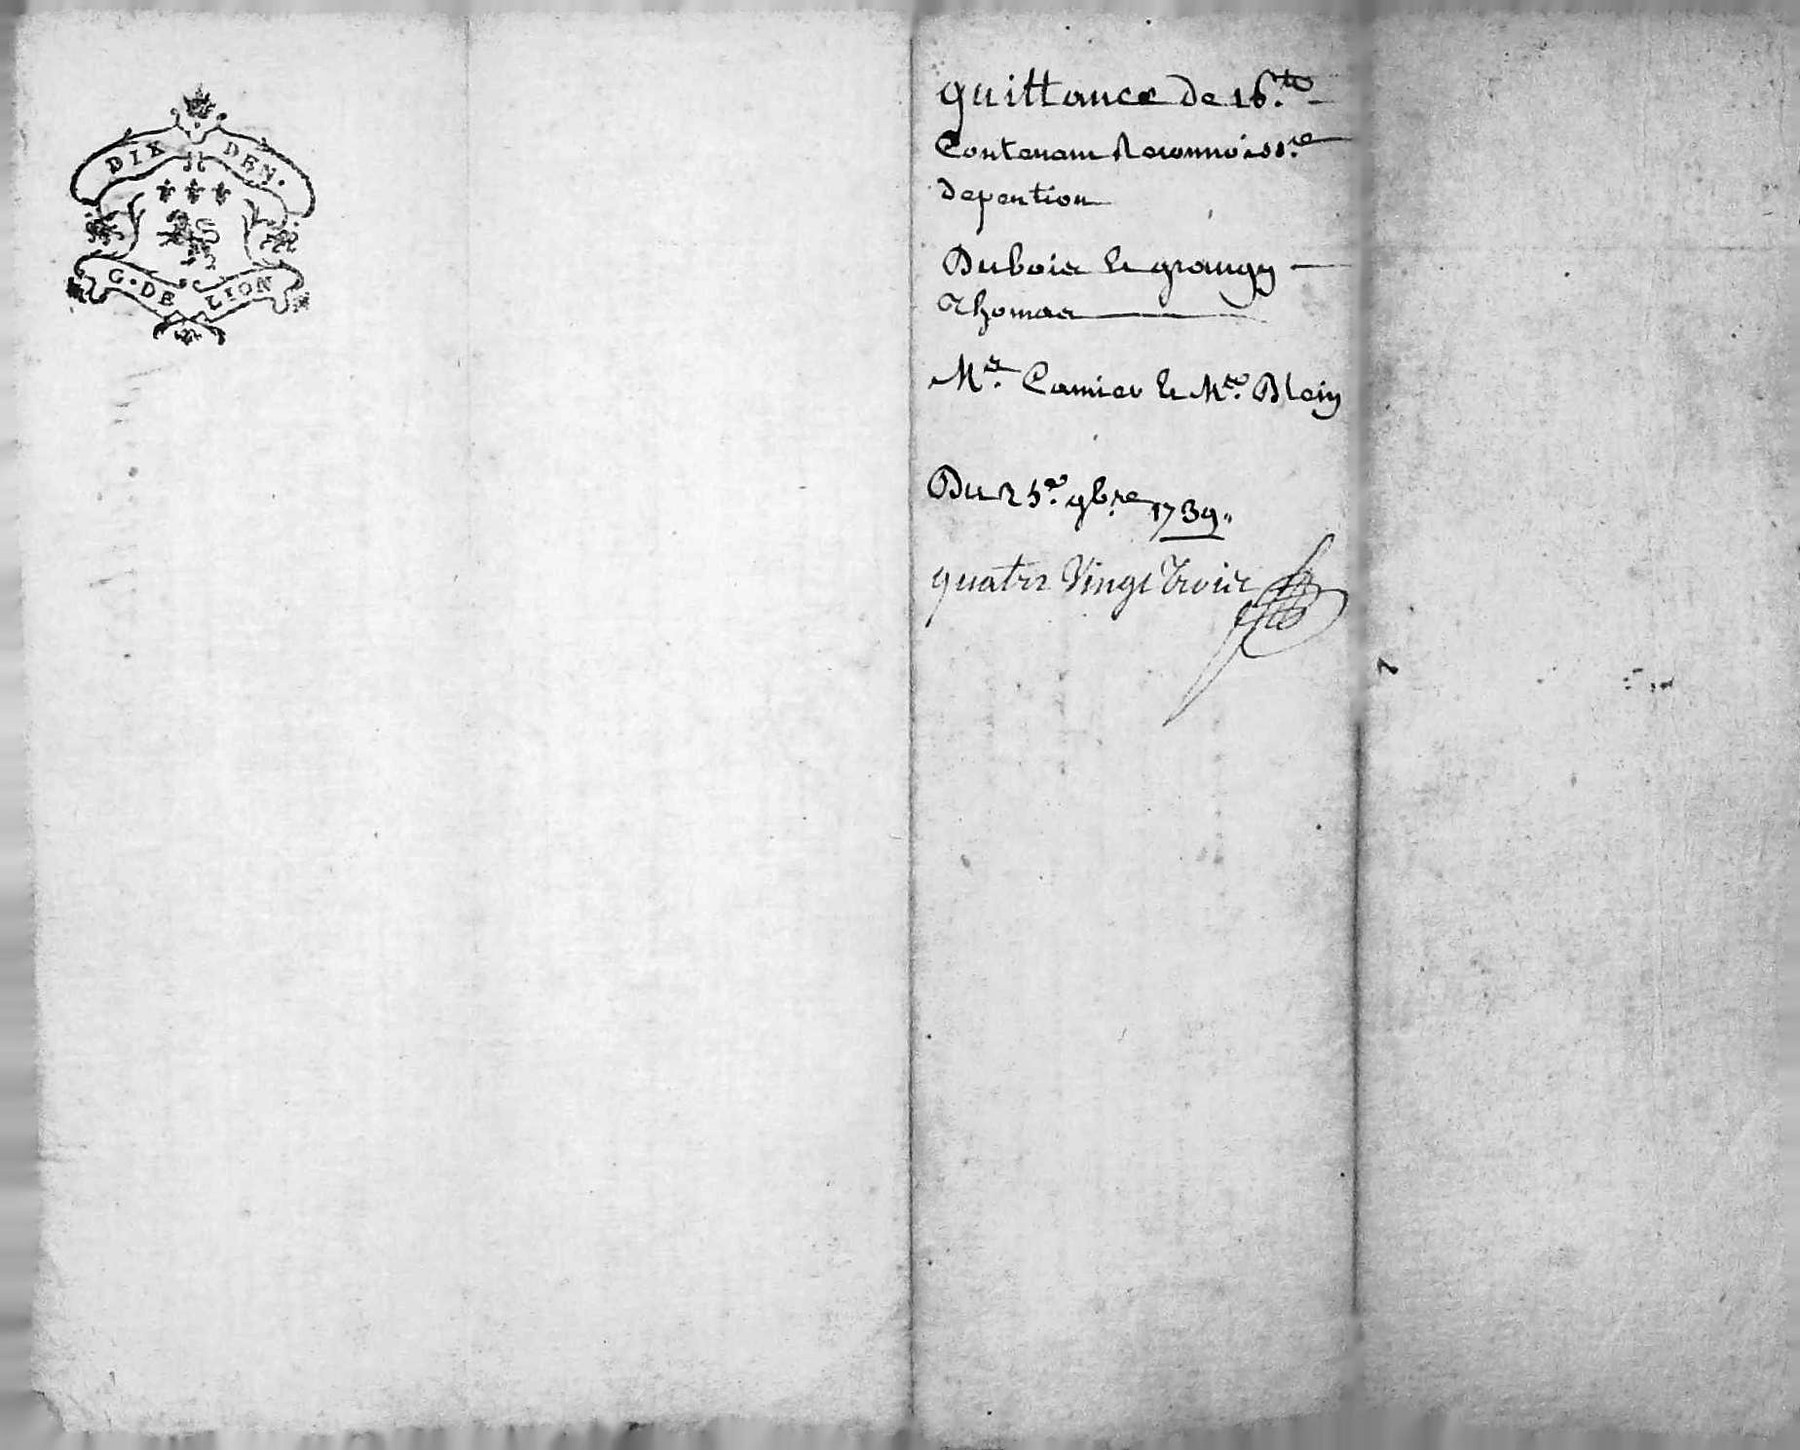 DIX DEN.
G. DE LION
quittance de 16.tt
Contenant Reconnoiss.ce
depention
Dubois le grangy
Thomas
M.e Camier le M.e Blein
Du 25.e 9b.re 1739
quatre Vingt Trois